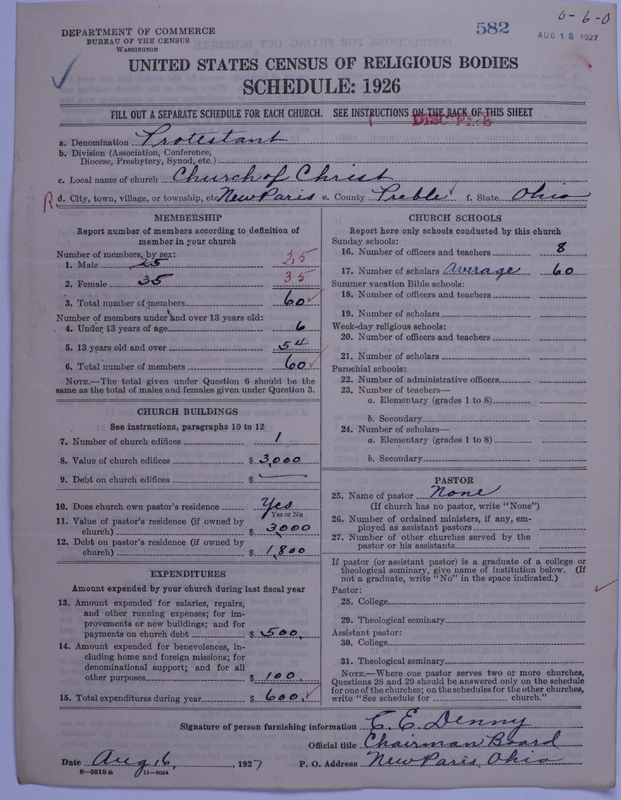 DEPARTMENT OF COMMERCE
BUREAU OF THE CENSUS
WASHINGTON
582
0-6-0
AUG 18 1927
UNITED STATES CENSUS OF RELIGIOUS BODIES
SCHEDULE: 1926
FILL OUT A SEPARATE SCHEDULE FOR EACH CHURCH. SEE INSTRUCTIONS ON THE BACK OF THIS SHEET
a. Denomination Protestant
b. Division (Association, Conference, Diocese, Presbytery, Synod, etc.)
c. Local name of church Church of Christ
R d. City, town, village, or township, etc. New Paris e. County Preble f. State Ohio
MEMBERSHIP
Report number of members according to definition of
member in your church
Number of members, by sex:
1. Male 25 25
2. Female 35 35
3. Total number of members 60
Number of members under and over 13 years old:
4. Under 13 years of age 6
5. 13 years old and over 54
6. Total number of members 60
NOTE.—The total given under Question 6 should be the
same as the total of males and females given under Question 3.
CHURCH BUILDINGS
See instructions, paragraphs 10 to 12
7. Number of church edifices 1
8. Value of church edifices $ 3,000
9. Debt on church edifices $
10. Does church own pastor's residence Yes
Yes or No
11. Value of pastor's residence (if owned by
church) $ 3000
12. Debt on pastor's residence (if owned by
church) $ 1,800
EXPENDITURES
Amount expended by your church during last fiscal year
13. Amount expended for salaries, repairs,
and other running expenses; for im-
provements or new buildings; and for
payments on church debt $ 500.
14. Amount expended for benevolences, in-
cluding home and foreign missions; for
denominational support; and for all
other purposes $ 100.
15. Total expenditures during year $ 600.
CHURCH SCHOOLS
Report here only schools conducted by this church
Sunday schools:
16. Number of officers and teachers 8
17. Number of scholars Average 60
Summer vacation Bible schools:
18. Number of officers and teachers
19. Number of scholars
Week-day religious schools:
20. Number of officers and teachers
21. Number of scholars
Parochial schools:
22. Number of administrative officers
23. Number of teachers—
a. Elementary (grades 1 to 8)
b. Secondary
24. Number of scholars—
a. Elementary (grades 1 to 8)
b. Secondary
PASTOR
25. Name of pastor None
(If church has no pastor, write "None")
26. Number of ordained ministers, if any, em-
ployed as assistant pastors
27. Number of other churches served by the
pastor or his assistants
If pastor (or assistant pastor) is a graduate of a college or
theological seminary, give name of institution below. (If
not a graduate, write "No" in the space indicated.)
Pastor:
28. College
29. Theological seminary
Assistant pastor:
30. College
31. Theological seminary
NOTE.—Where one pastor serves two or more churches,
Questions 28 and 29 should be answered only on the schedule
for one of the churches; on the schedules for the other churches,
write "See schedule for church."
Signature of person furnishing information C. E. Denny
Official title Chairman Board
Date Aug 6, 1927 P. O. Address New Paris, Ohio
8—5518a 11—9054